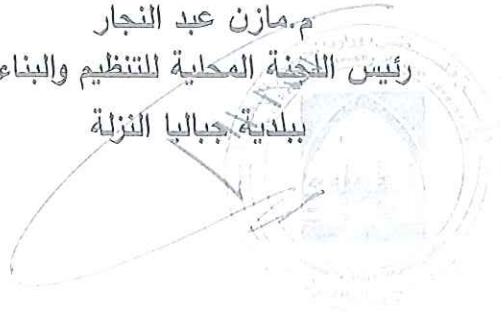 م.مازن عبد النجار
رئيس اللجنة المحلية للتنظيم والبناء
ببلدية جباليا النزلة